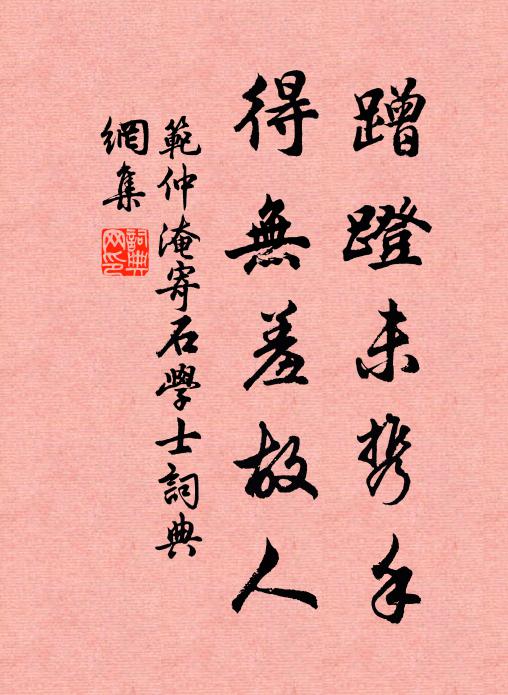 蹭蹬未携手
得無羞故人
範仲淹寄石學士詞典
網集
詞典
網印